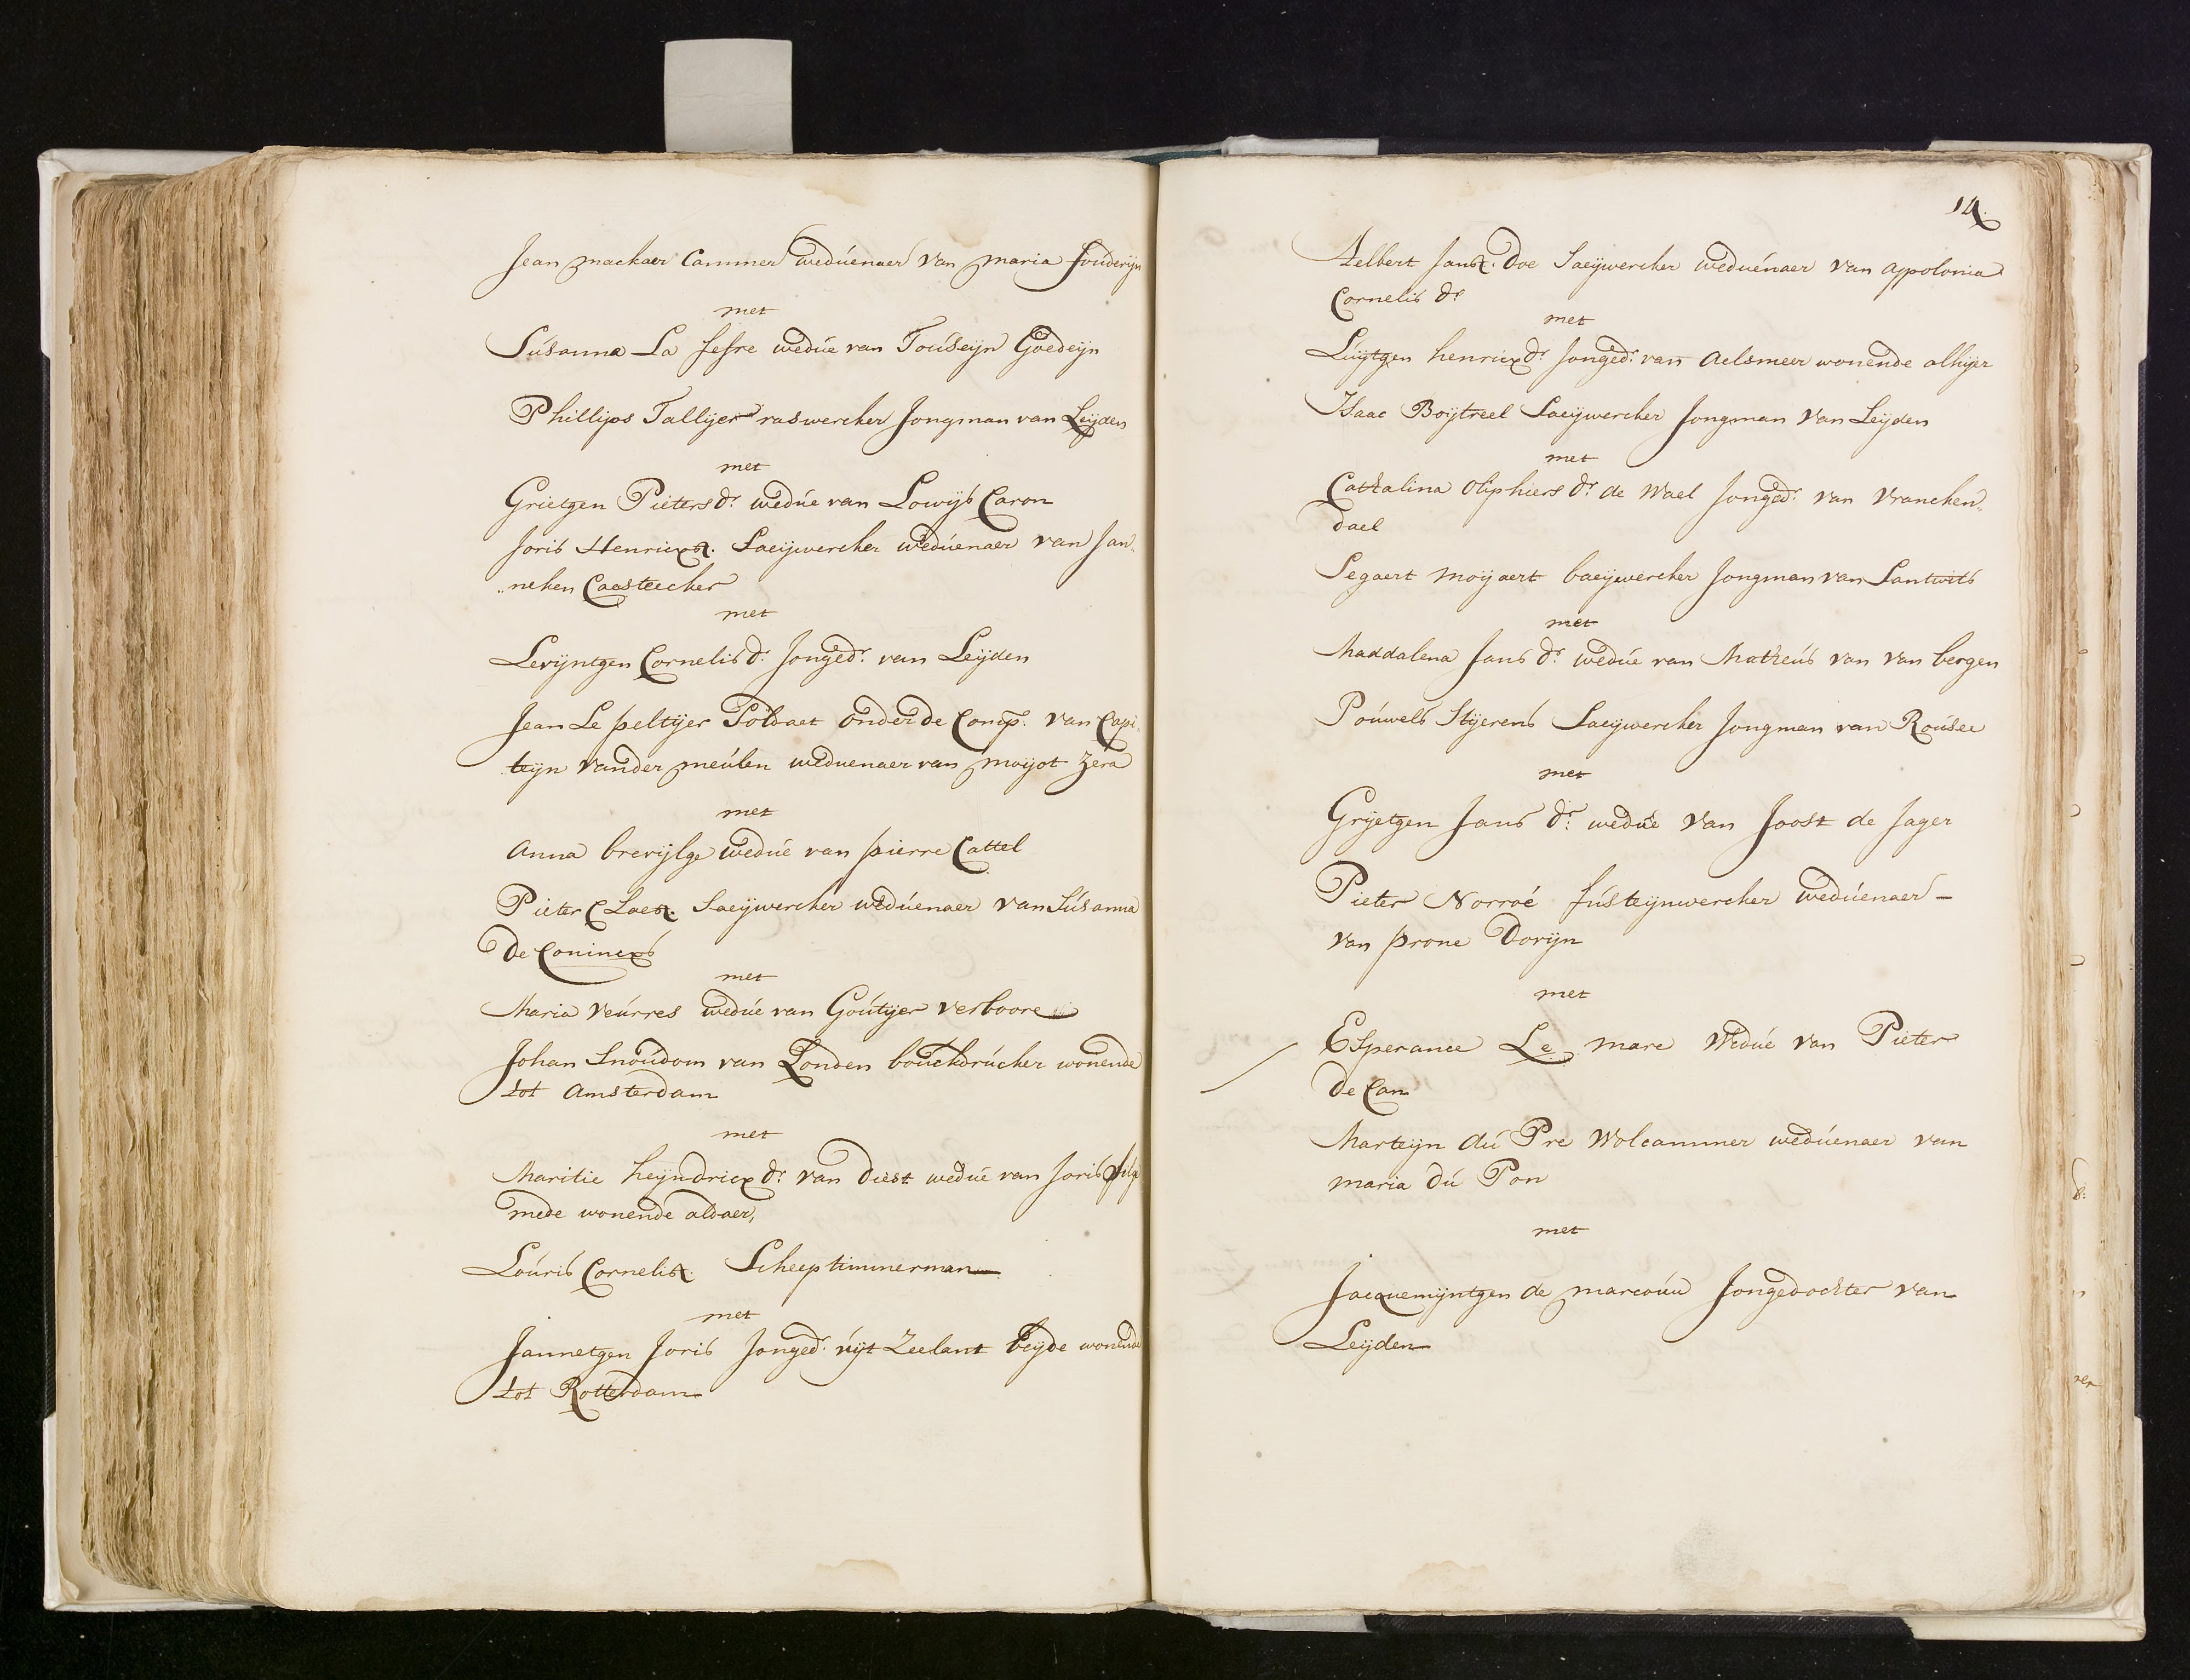 Jean mackaer Cammer weduenaer van maria fouderyn
met
Susanna La fefre wedue van Touseyn Goedeyn
Phillips Tallyer raswercker Jongman van Leyden
met
Grietgen Pieters dr. wedue van Lowijs Caron
Joris Henricxz. Saeywercker weduenaer van Jan
neken Caasteecker
met
Levyntgen Cornelis dr. Jonged. van Leyden
Jean Le peltyer Soldaet onder de Comp. van Capi
teyn vander meulen weduenaer van moyot Zera
met
Anna brevylge wedue van pierre Cattel
Pieter Claesz. Saeywercker weduenaer van Susanna
De Conincxs
met
Maria veurres wedue van Goutyer verboore
Johan Snoudom van Londen bouckdrucker wonende
tot Amsterdam
met
Maritie heyndricx dr. van Diest wedue van Joris
mede wonende aldaer,
Louris Cornelisz. Scheeptimmerman
met
Jannetgen Joris Jonged. uyt Zeelant beyde wonende
tot Rotterdam
14.
Aelbert Jansz. Doe Saeywercker weduenaer van Appolonia
Cornelis dr.
met
Luytgen henricx dr. Jonged. van Aelsmeer wonende alhyer
Isaac Boytreel Saeywercker Jongman van Leyden
met
Cathalina Oliphiers dr. de Wael Jonged. van Vrancken
dael
Segaert moyaert baeywercker Jongman van Santwits
met
Maddalena Jans dr. wedue van Matheus van van bergen
Pouwels Styerens Saeywercker Jongman van Rousee
met
Gryetgen Jans dr. wedue van Joost de Jager
Pieter Norroé fusteynwercker weduenaer -
van prone Doryn
met
Esperance Le mare Wedue van Pieter
de Can
Marteyn du Pre Wolcammer weduenaer van
maria du Pon
met
Jacquemyntgen de marcouw Jongedochter van
Leyden